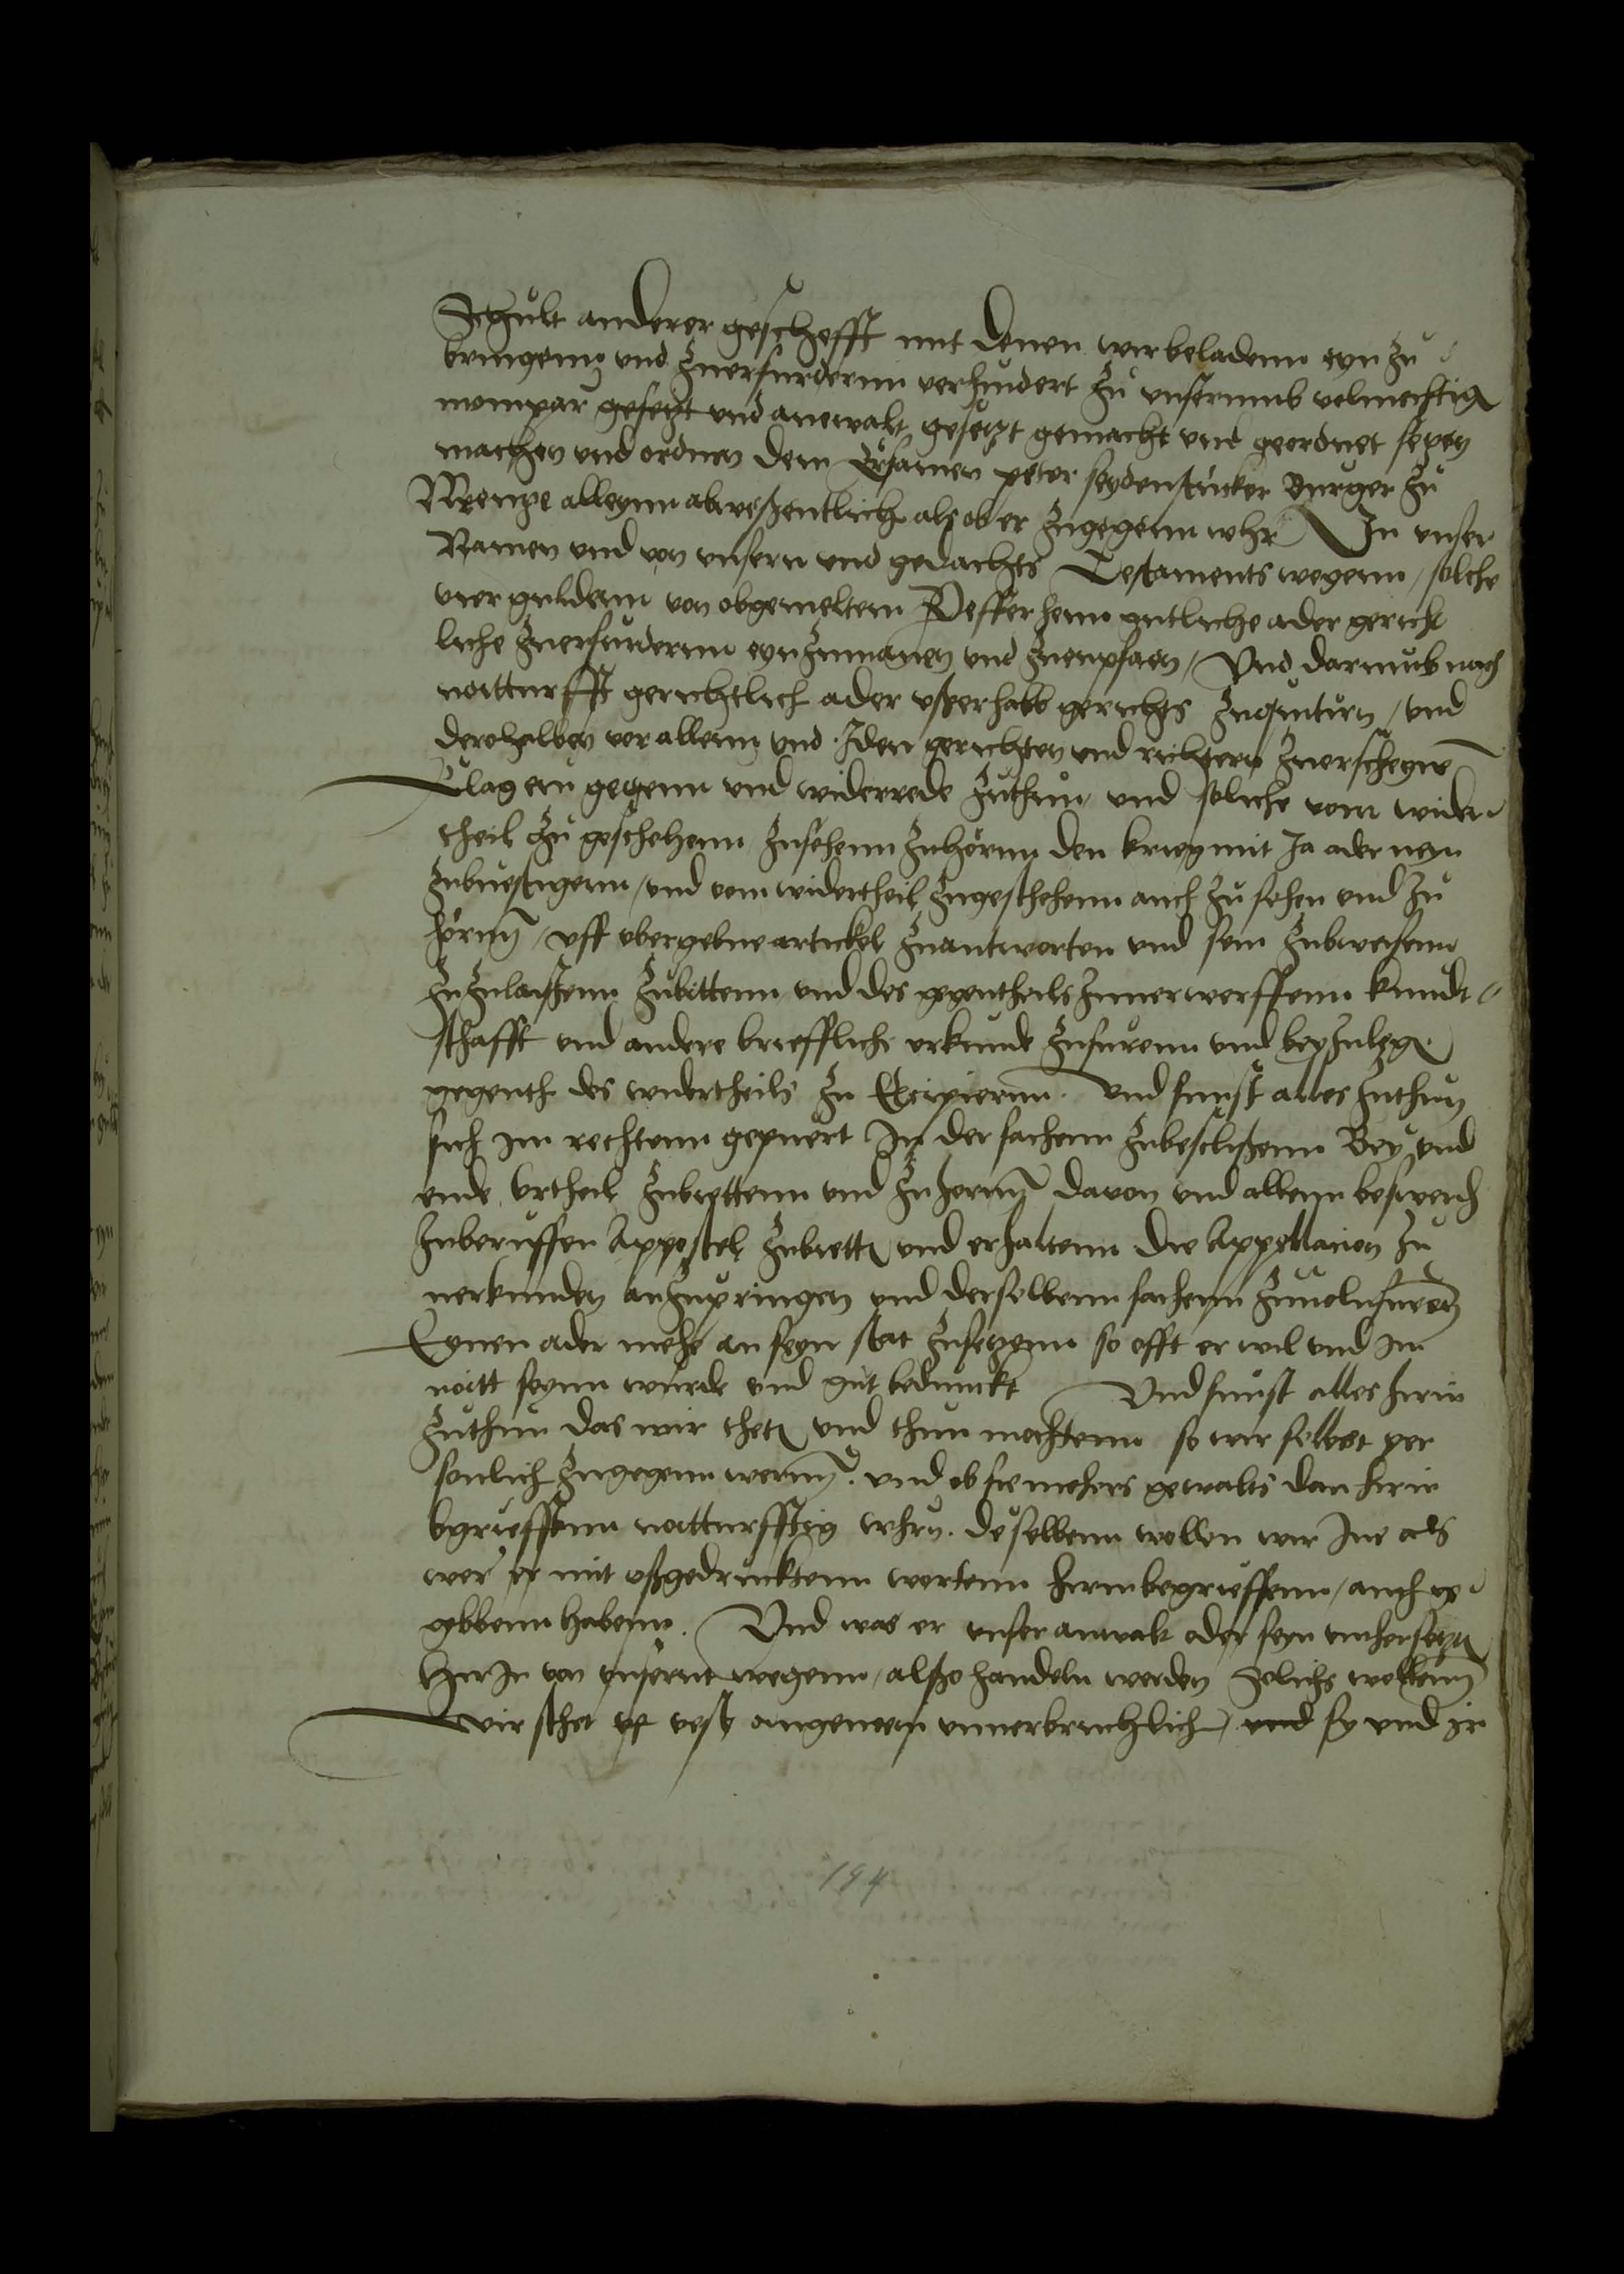 Schult anderer geschefft mit denen wir beladenn eyn zu
bringenn und zuerfurdernn verhindert zu unsernnb volmechtig
mompar gesetzt und anewalt gesetzt gemacht und geordnet setzen
machen und ordnen dem Ersamen peter seydenstricker Burger zu
Mentze alleynn abweßentlich als ob er zugegenn whr In unser
Namen und von unsern und gedachts Testaments wegenn / solche
vier guldenn von obgemeltem Peffer henn gutliche ader gericht
liche zuerfurdernn eynzumanen und zuenpfaen / Und darumb nach
notturfft gerichtlich ader usserhalb gerichts zuquitirn / und
derohalben vor allenn und iden gerichten und richtern zuerscheyne
Clag ein gegenn und widerrede zuthun und soliche vom wider
theil zu geschehenn zusehenn zuhörnn den krieg mit Ja ader neyn
zubvestigenn / und vom widertheil zugeschehenn auch zu sehen und zu
hörnn / uff ubergebne artickel zuantworten und sein zubweisenn
zuzulaissenn zubittenn und des gegentheils zuverwerffenn kundt
schafft und andere brieffliche urkunde zufurenn und beyzulegen
gegenth des widertheils zu Excipiernn. und sunst alles zuthun
sich im rechtenn gepuert In der sachenn zubeslissenn Bey und
ende urtheil zubiettenn und zuhornn davon und allenn beswerd
zuberuffen Appostel zubiette und erhaltenn die Appellacion zu
verkunden anzupringen und derselbenn sachenn zuvolnfueren
Eynen ader mehe an seyn stat zusetzenn so offt er wil und im
noitt seynn wurde und gut bedunckt Und sunst alles hirin
zuthun das wir thete und thun mochtenn so wir selbst per
sonlich zugegenn wernn. und ob sie mehers gewalts dan hirin
bgrieffenn notturfftig whrn. deselbenn wollen wir Ine als
wer er mit ußgedrucktenn wortenn hirin begrieffenn / auch ge
gebbenn habenn. Und was er unser anwalt oder seyn underseze
hirIn von unsernt wegenn / alßo handeln werden Solichs wollenn
wir sthet vest angenem unverbruchlich / und sy und ir
194